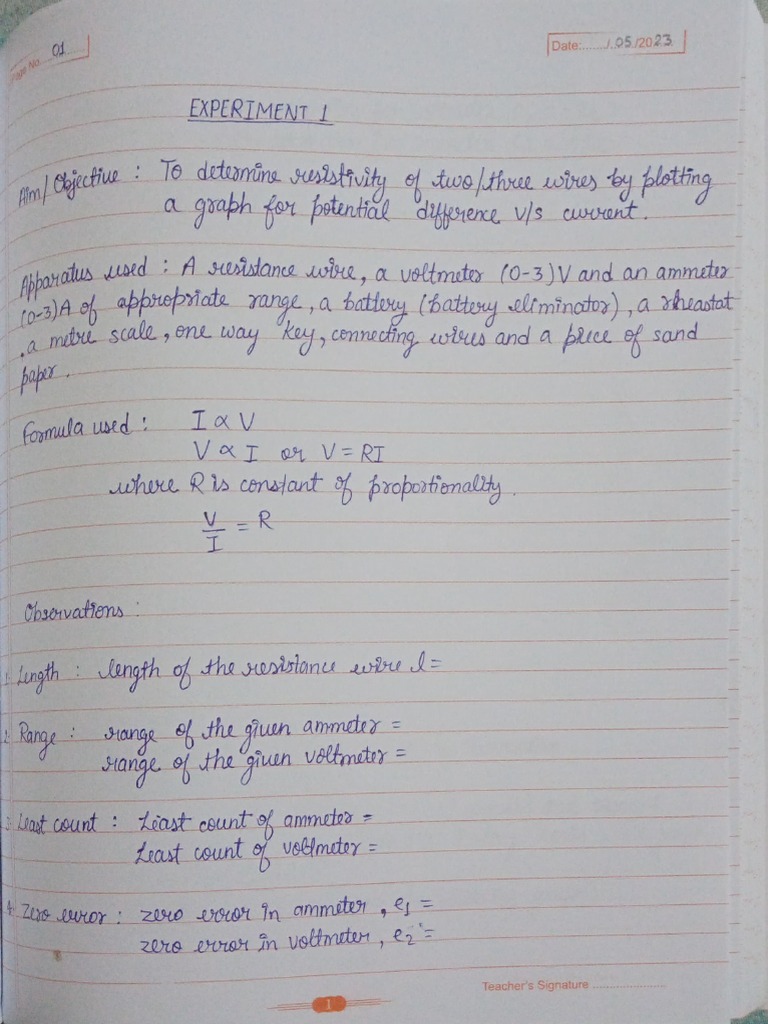 Page No. 01
Date:....../.05./2023
EXPERIMENT 1
Aim/Objective : To determine resistivity of two/three wires by plotting
a graph for potential difference v/s current.
Apparatus used : A resistance wire, a voltmeter (0-3)V and an ammeter
(0-3)A of appropriate range, a battery (battery eliminator), a rheastat
, a metre scale, one way key, connecting wires and a piece of sand
paper.
Formula used : I ∝ V
V ∝ I or V = RI
where R is constant of proportionality.
V/I = R
Observations :
1. Length : length of the resistance wire l =
2. Range : range of the given ammeter =
range of the given voltmeter =
3. Least count : Least count of ammeter =
Least count of voltmeter =
4. Zero error : zero error in ammeter, e₁ =
zero error in voltmeter, e₂ =
Teacher's Signature ....................
1